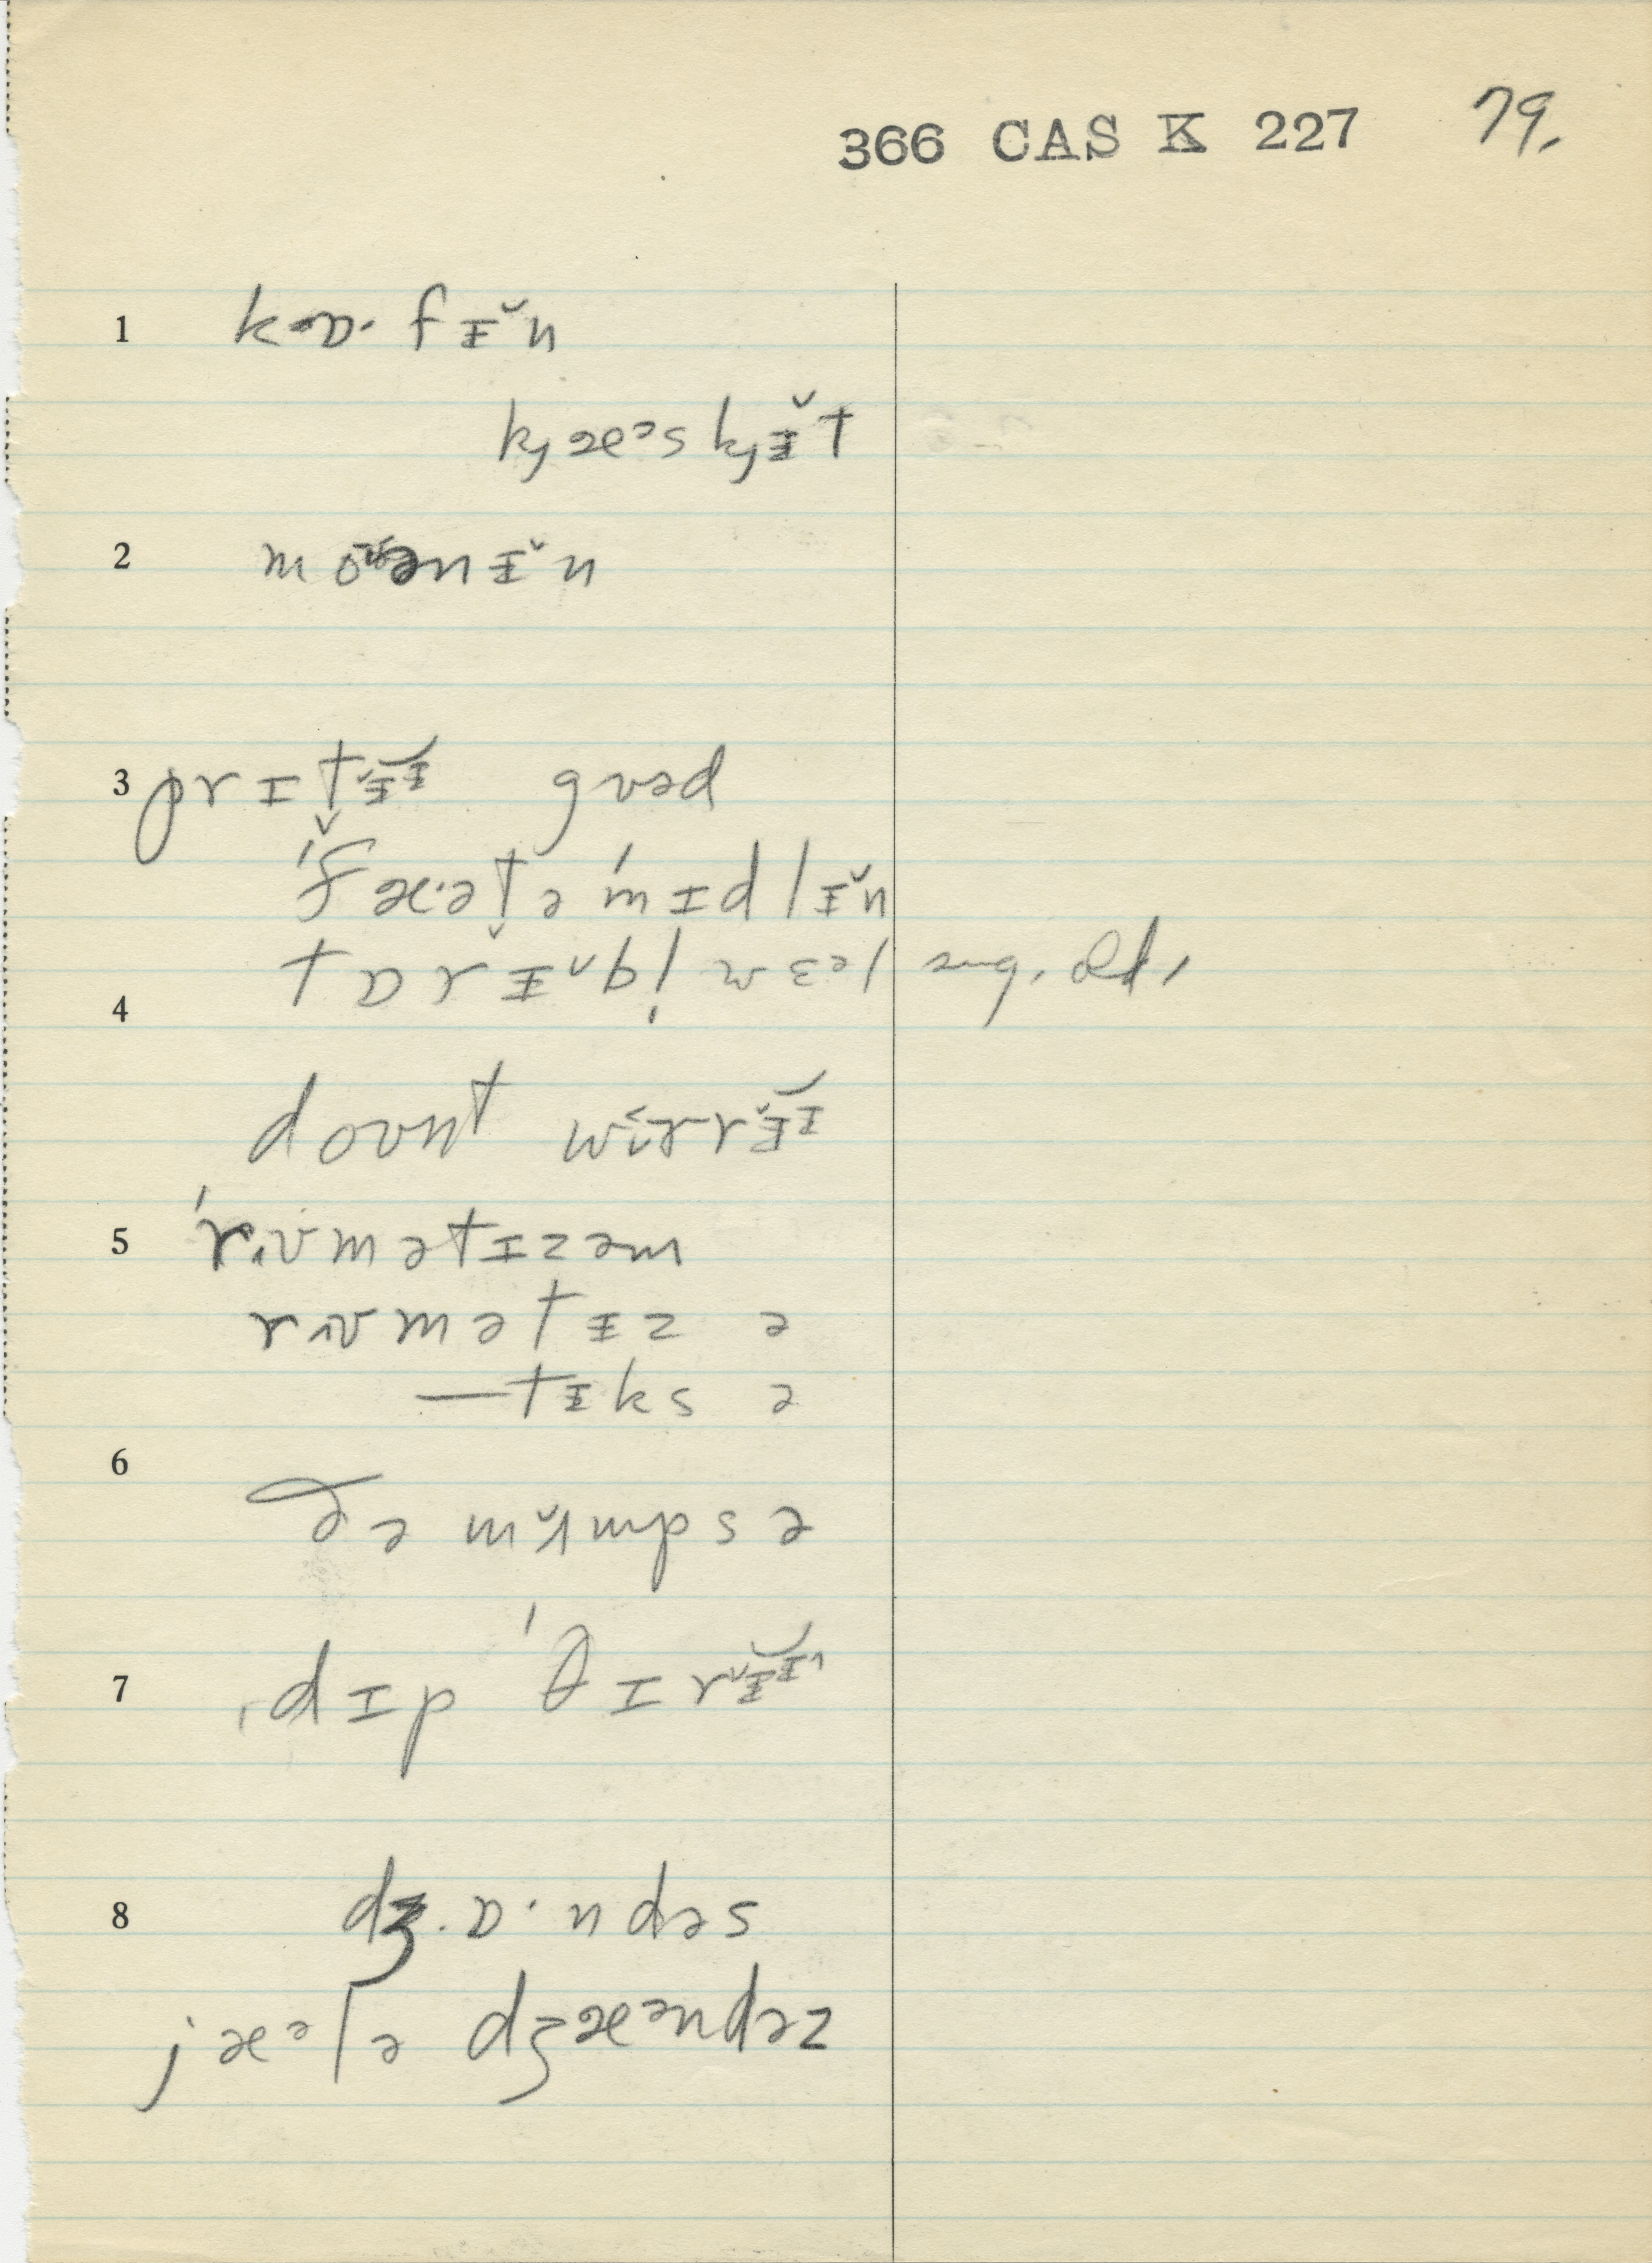 366 CAS K 227 79.
1 kɒ· fɪ̵̆n
kȷæᵊskȷɪ̵̆t
2 mo ənɪ̵̆n
3 prɪt̬ɪ̵̆ɪ̵̆ gʊəd
ˈfæ·ət̬ə ˈmɪdlɪ̵̆n
4 tɒrɪ̵̆b!
dount wɜrrɪ̵̆ɪ
5 ˈrɪʊmətɪzəm
rɪʊmətɪ̵z ə
—tɪ̵ks ə
6 ðə mʌ̆mps ə
7 ˌdɪp ˈθɪrɪ̵̆ɪ̵
8 dʒ·ɒ·ndəs
jæᵊlə dʒæᵊndəz